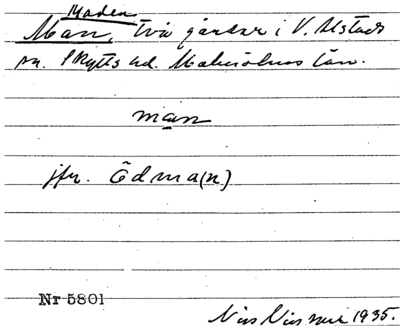 Maden
Man, två gårdar i V. Alstads
sn. Skytts hd. Malmöhus län.
man
jfr. Ödma(n)
Nr 5801
Nils 1935.